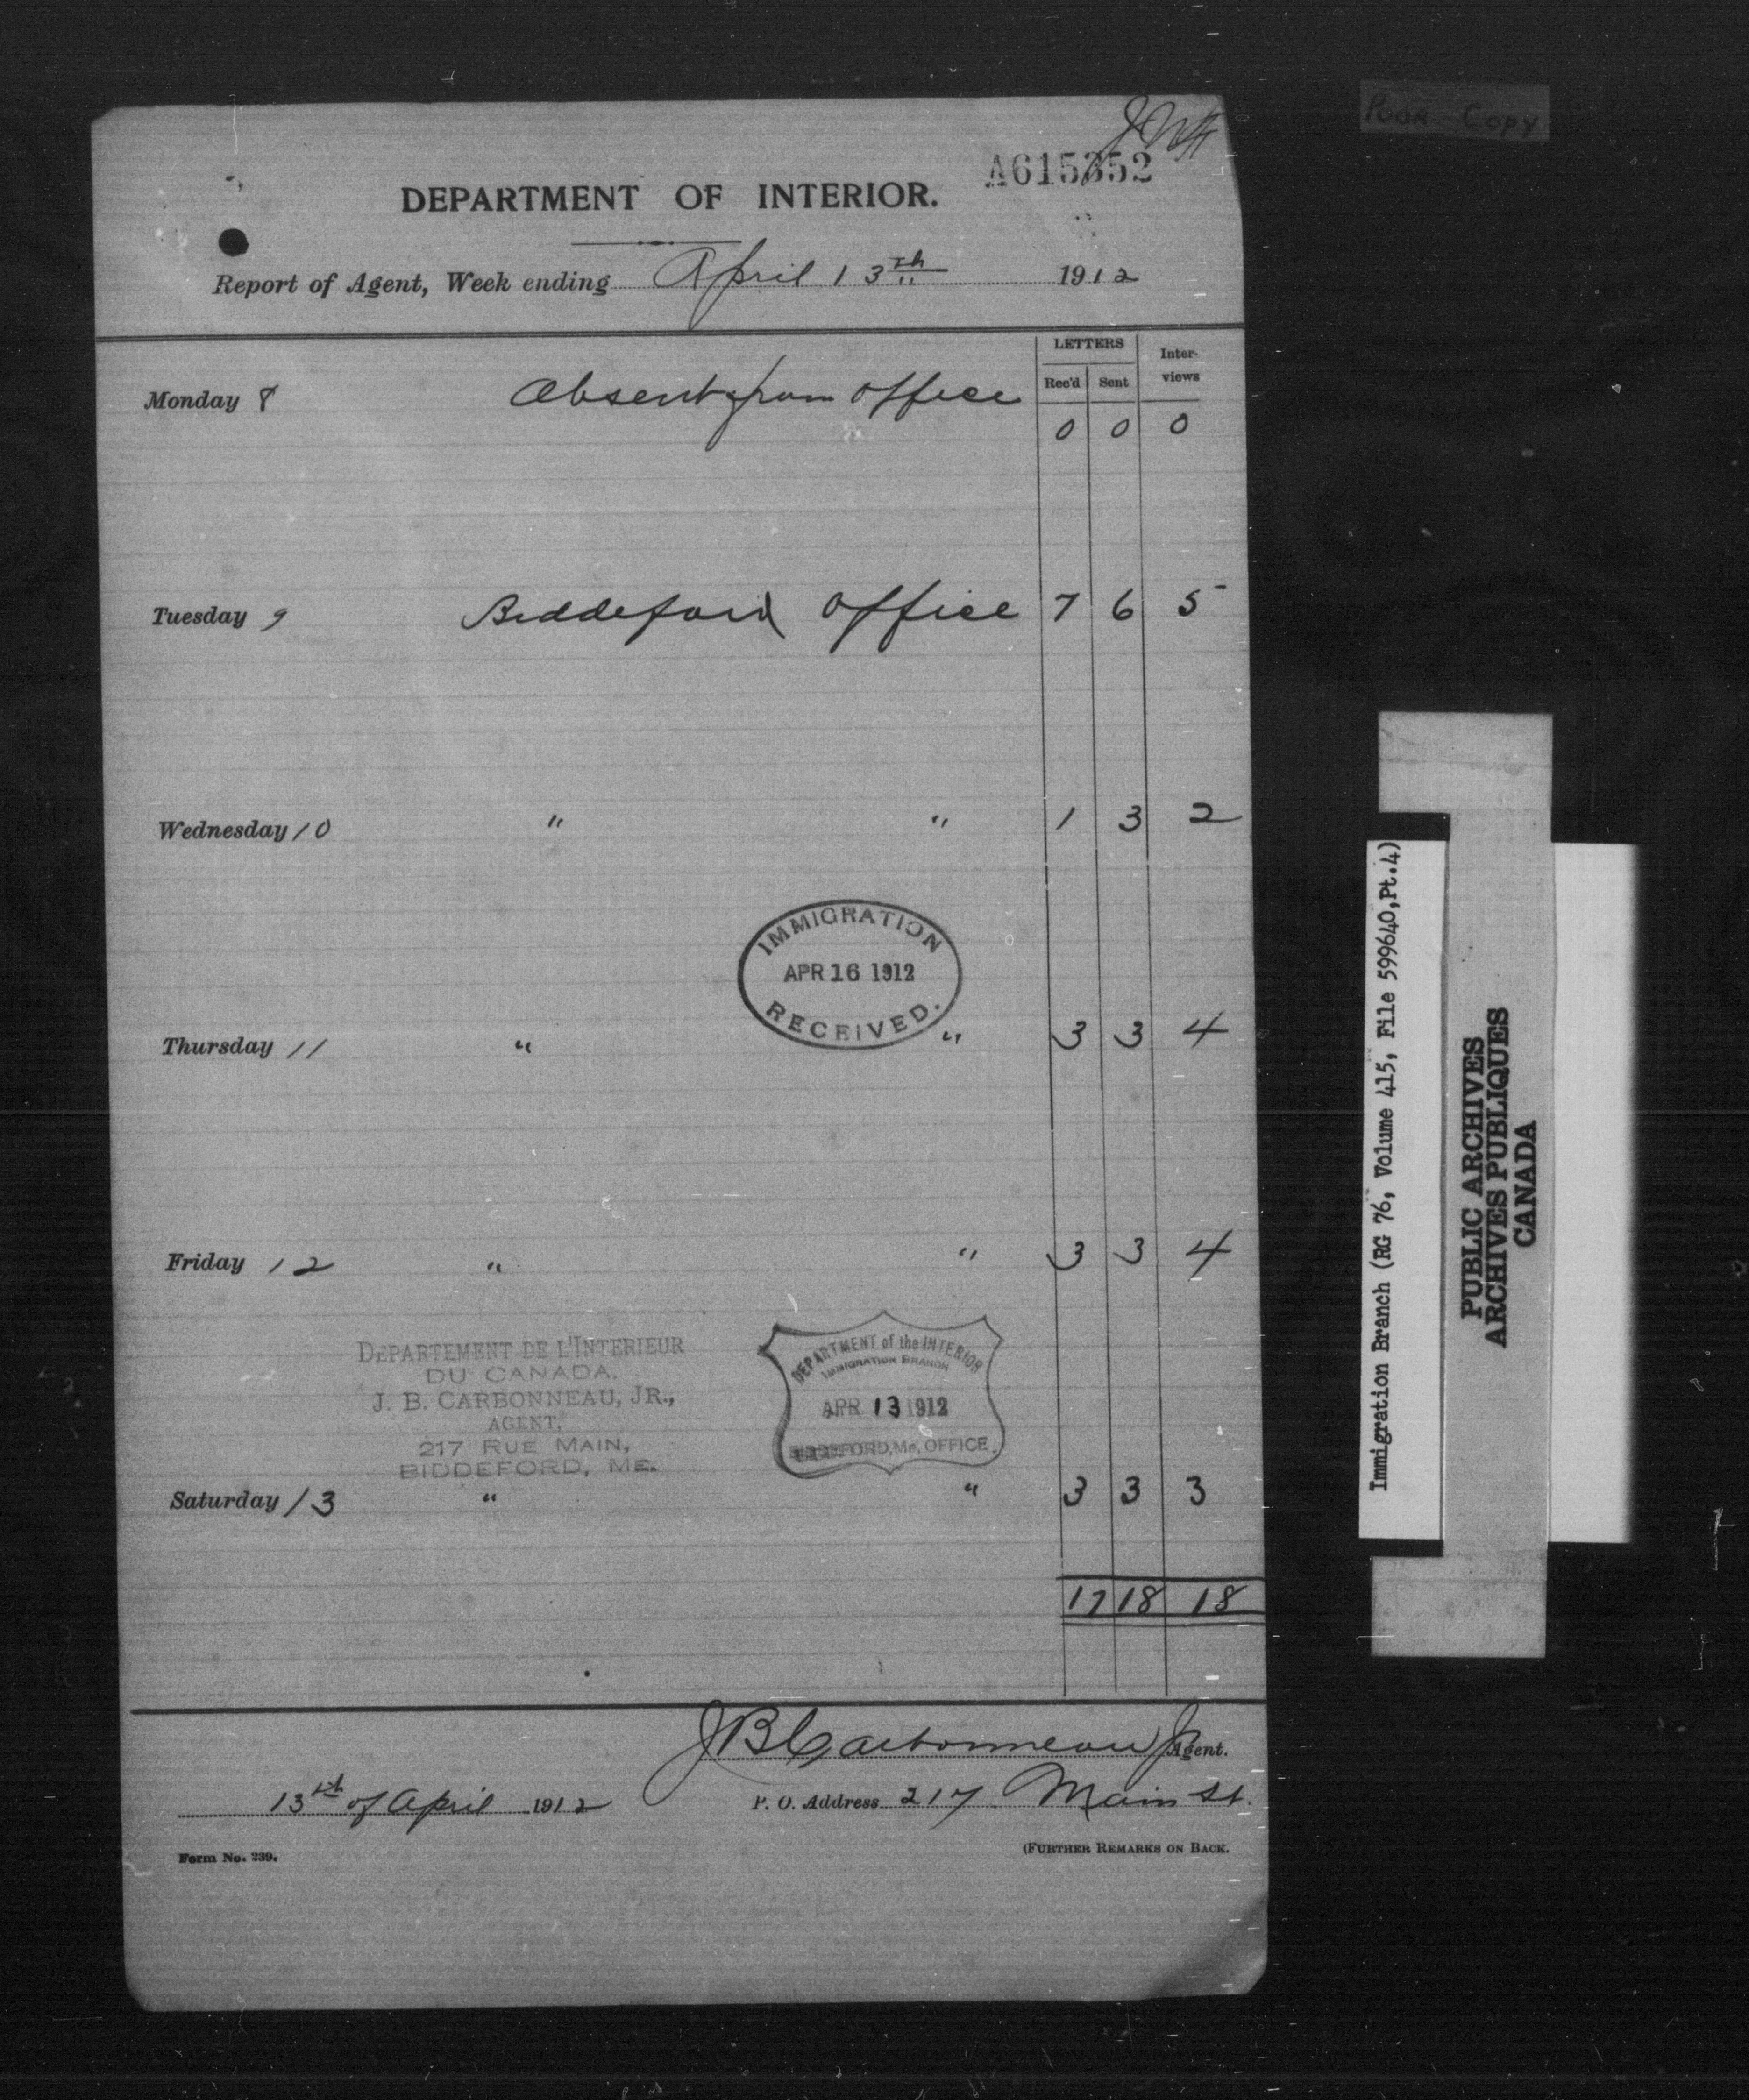 Poor Copy
A615352
DEPARTMENT OF INTERIOR.
Report of Agent, Week ending April 13th 1912
LETTERS Inter-views
Rec'd Sent
Monday 8 Absent from office
0 0 0
Tuesday 9 Biddeford Office 7 6 5
Wednesday 10 " " 1 3 2
IMMIGRATION
APR 16 1912
RECEIVED.
Thursday 11 " " 3 3 4
Friday 12 " " 3 3 4
DEPARTEMENT DE L'INTERIEUR
DU CANADA.
J. B. CARBONNEAU, JR.,
AGENT,
217 RUE MAIN,
BIDDEFORD, ME.
DEPARTMENT of the INTERIOR
IMMIGRATION BRANCH
APR 13 1912
BIDDEFORD, Me, OFFICE.
Saturday 13 " " 3 3 3
17 18 18
J B Carbonneau Jr Agent.
13th of April 1912 P. O. Address 217 Main St.
Form No. 239. (FURTHER REMARKS ON BACK.
Immigration Branch (RG 76, Volume 415, File 599640, Pt.4)
PUBLIC ARCHIVES
ARCHIVES PUBLIQUES
CANADA